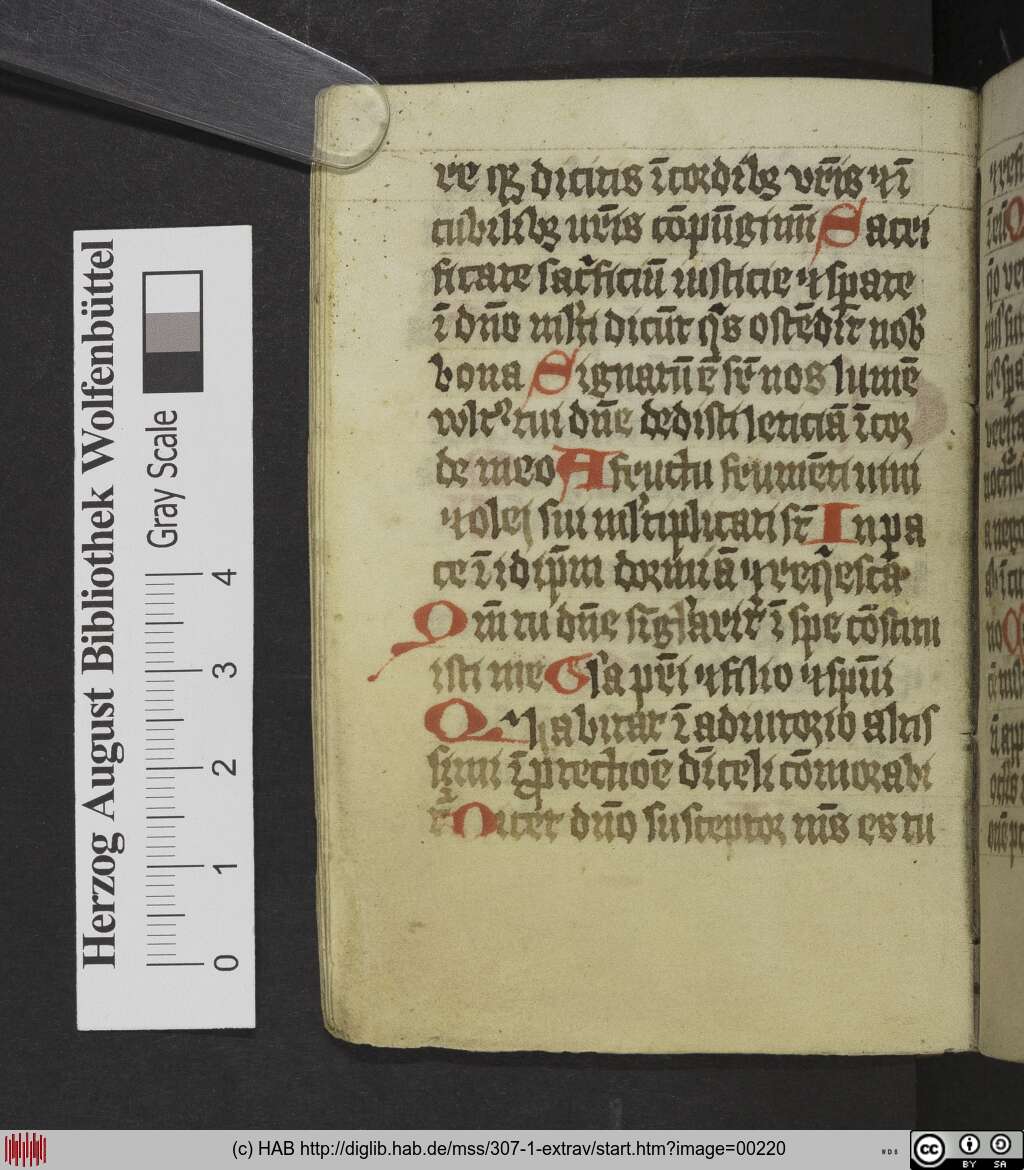 re qꝫ dicitis ī cordibꝫ vr̄is ⁊ ī
cubilibꝫ ur̄is cōpūgimī Sacri
ficate sacͥficiū iusticie ⁊ spate
ī dn̄o ml̓ti dicūt qͥs ostēdit̄ nob̓
bona Signatū ē sr̄ nos lumē
wlt᷒ tui dn̄e dedisti leticiā ī cor
de meo A fructu frumēti uini
⁊ olei sui ml̓tiplicati st̄ In pa
ce ī idip̄m dormiā ⁊ reqͥescā
Qm̄ tu dn̄e sīgl̓arit᷑ ī spe cōstitu
isti me Gl̓a pr̄i ⁊ filio ⁊ spūi
Qui habitat ī adiutorio altis
simi ī ꝓtectiōe dī celi cōmorabi
t᷑ Dicet dn̄o susceptor m̄s es tu
Herzog August Bibliothek Wolfenbüttel
Gray Scale
0 1 2 3 4
(c) HAB http://diglib.hab.de/mss/307-1-extrav/start.htm?image=00220
cc BY SA